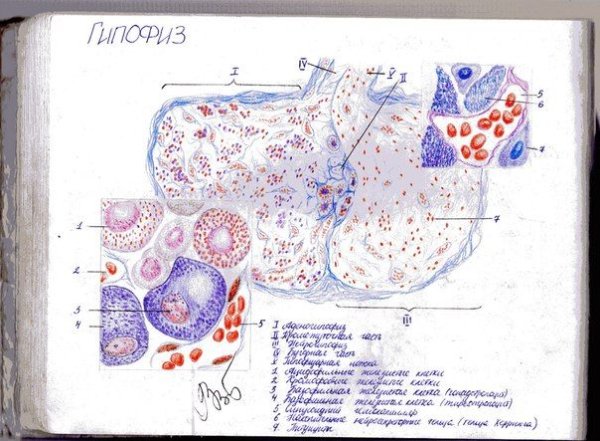 ГИПОФИЗ
I
IV
V
II
5
6
7
1
2
3
4
5
7
III
I Аденогипофиз
II Промежуточная часть
III Нейрогипофиз
IV Туберальная часть
V Гипофизарная ножка
1 Ацидофильные железистые клетки
2 железистые клетки
3 Базофильная железистая клетка (гонадотропоцит)
4 Базофильная железистая клетка (тиреотропоцит)
5 Синусоидный
6 нейросекреторные тельца (тельца Херринга)
7 Питуицит